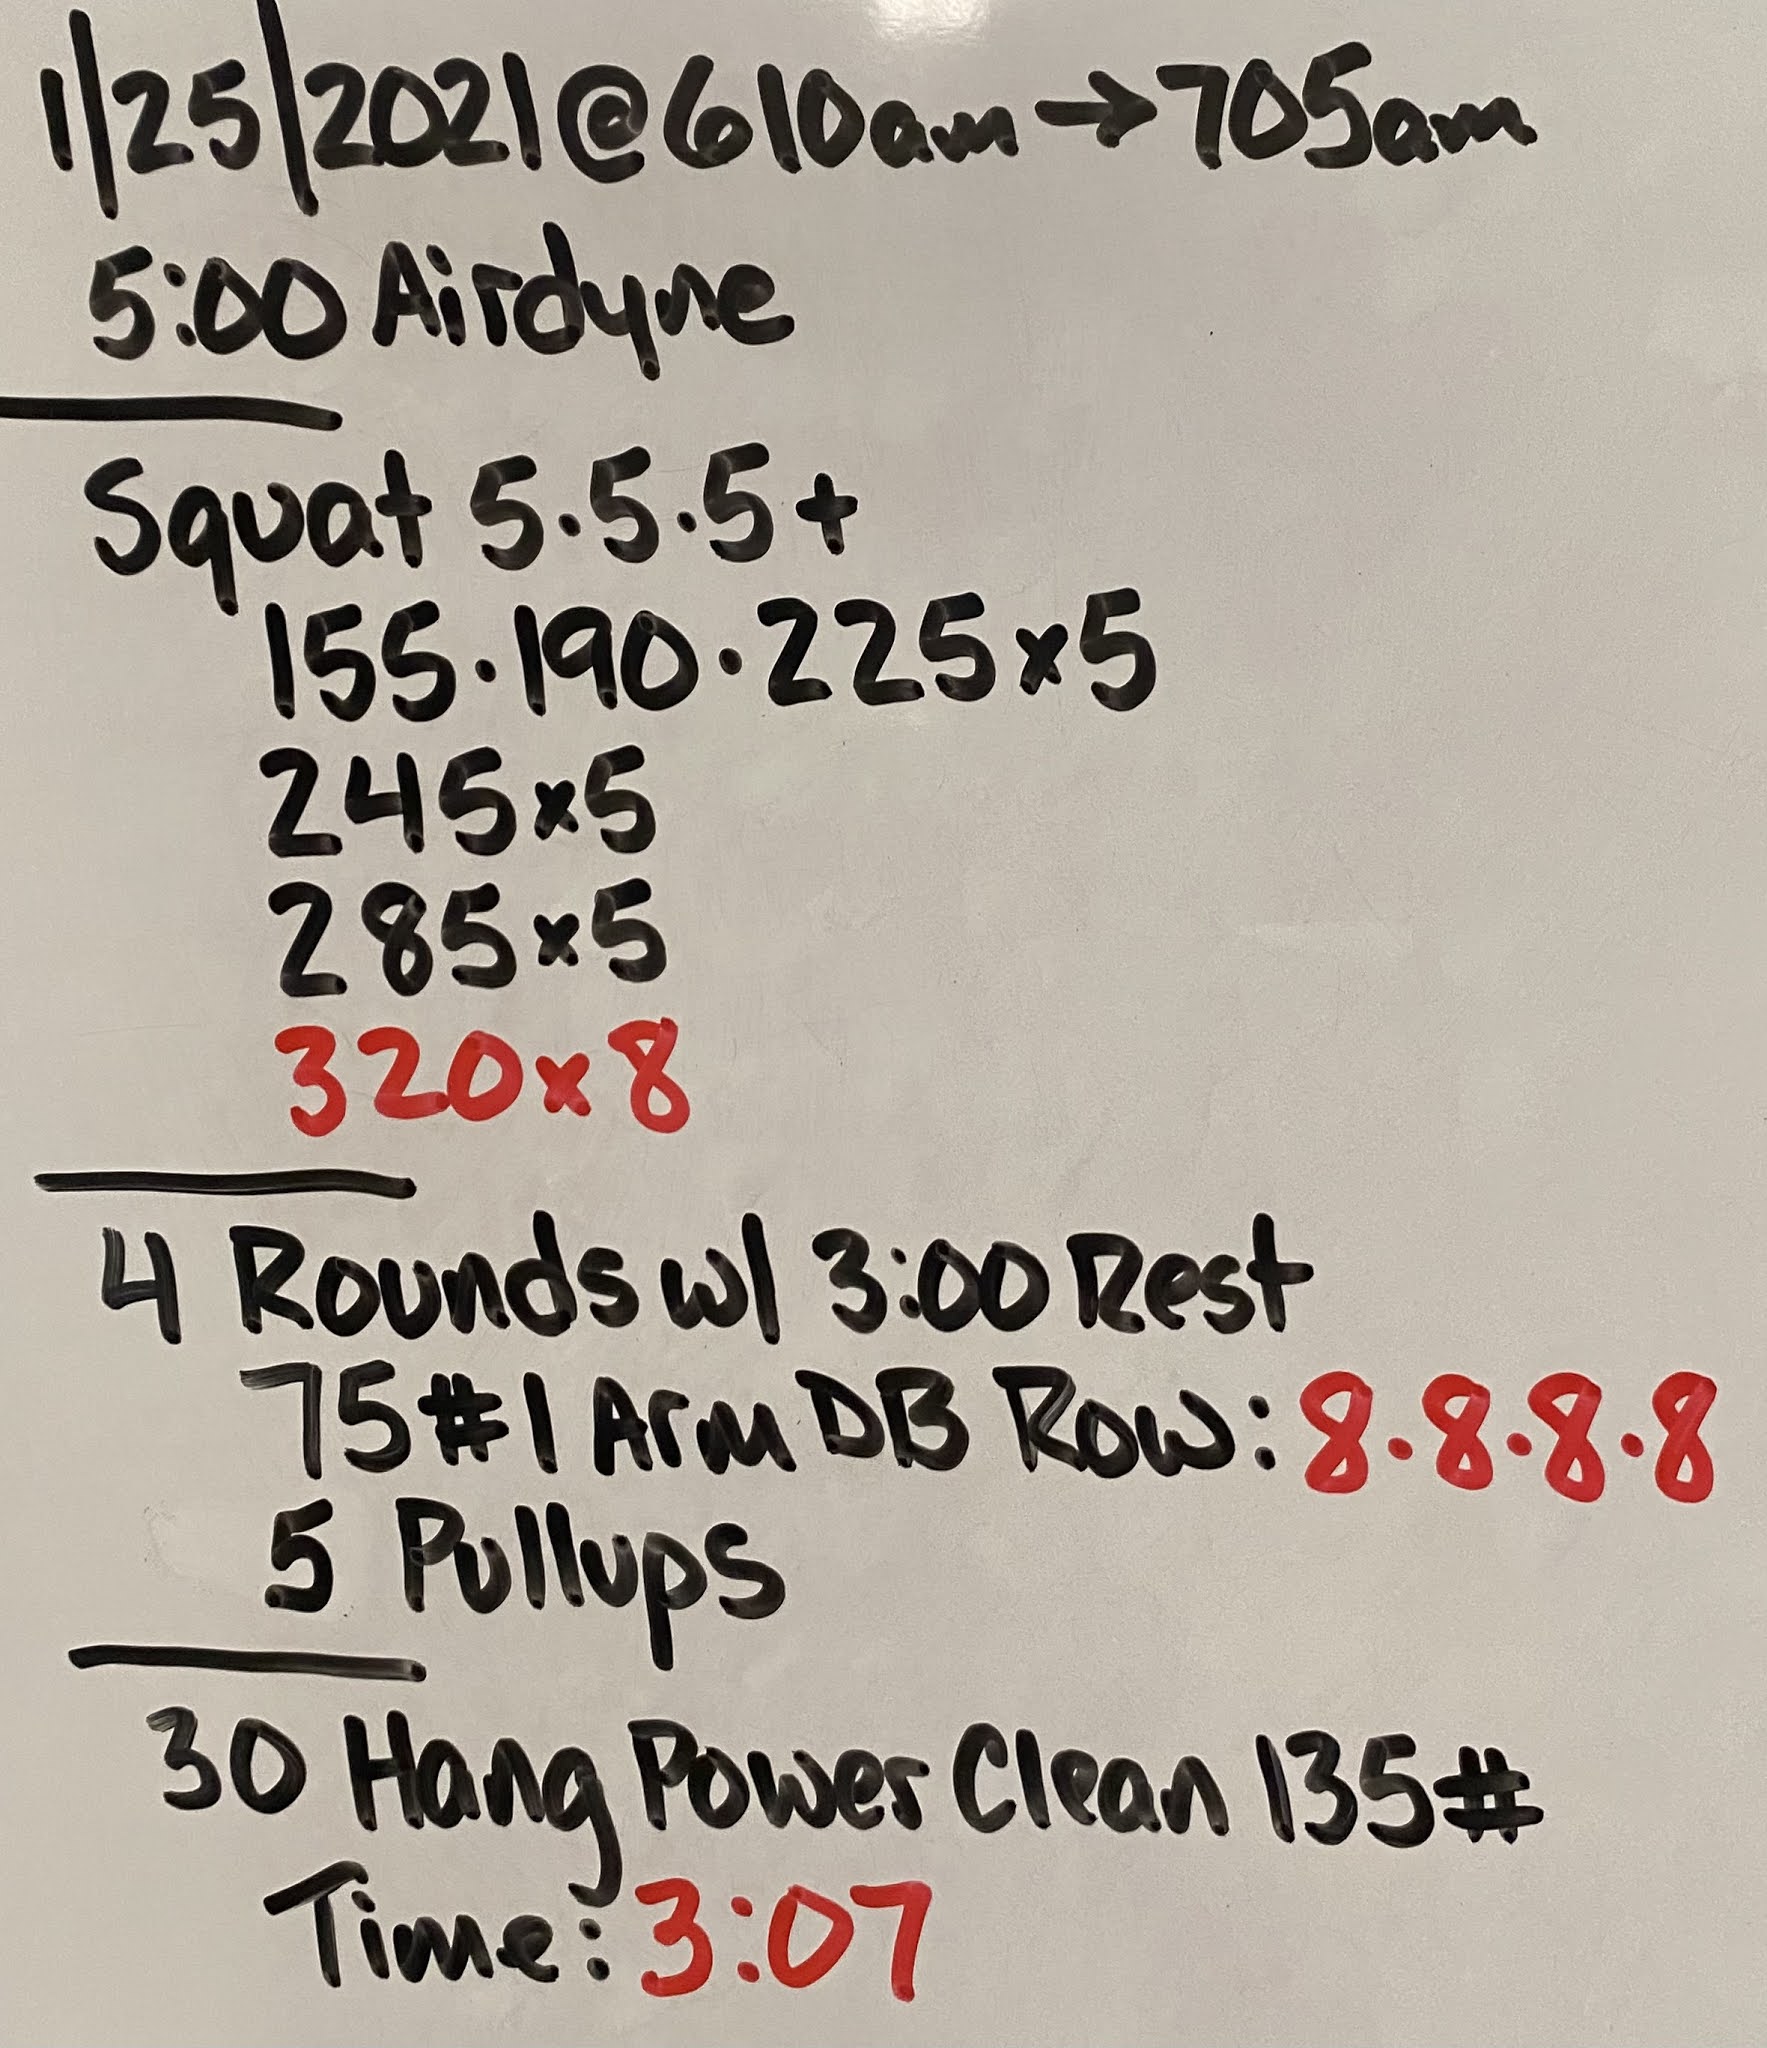 1/25/2021@610am→705am
5:00 Airdyne
Squat 5·5·5+
155·190·225x5
245x5
285x5
320x8
4 Rounds w/ 3:00 Rest
75# 1 Arm DB Row: 8·8·8·8
5 Pullups
30 Hang Power Clean 135#
Time: 3:07